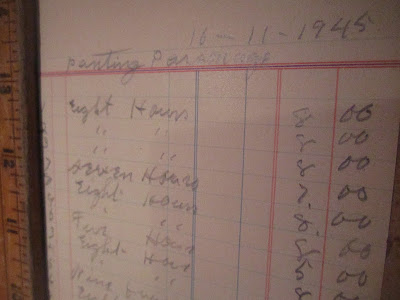 16-11-1945
panting Parsonage
Eight Hours 8 00
" " 8 00
" " 8 00
seven Hours 7 00
Eight Hours 8 00
" " 00
Five Hours 00
Eight Hour 8 00
" " 8 00
Nine